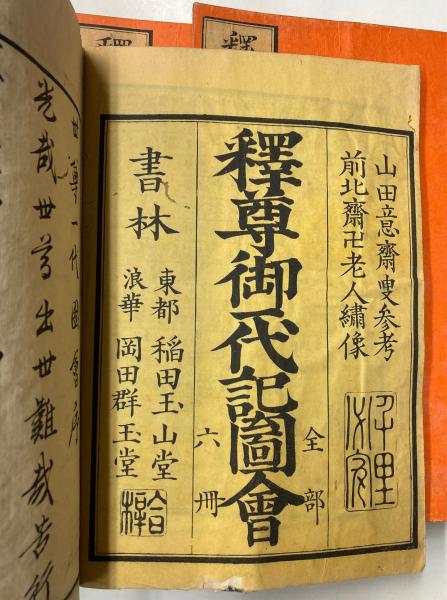 釋
釋
山田意齋叟参考
前北齋卍老人繡像
全部
釋尊御一代記圖會
六冊
書林
東都 稲田玉山堂
浪華 岡田群玉堂
合梓
世尊一代圖會序
世尊出世難哉